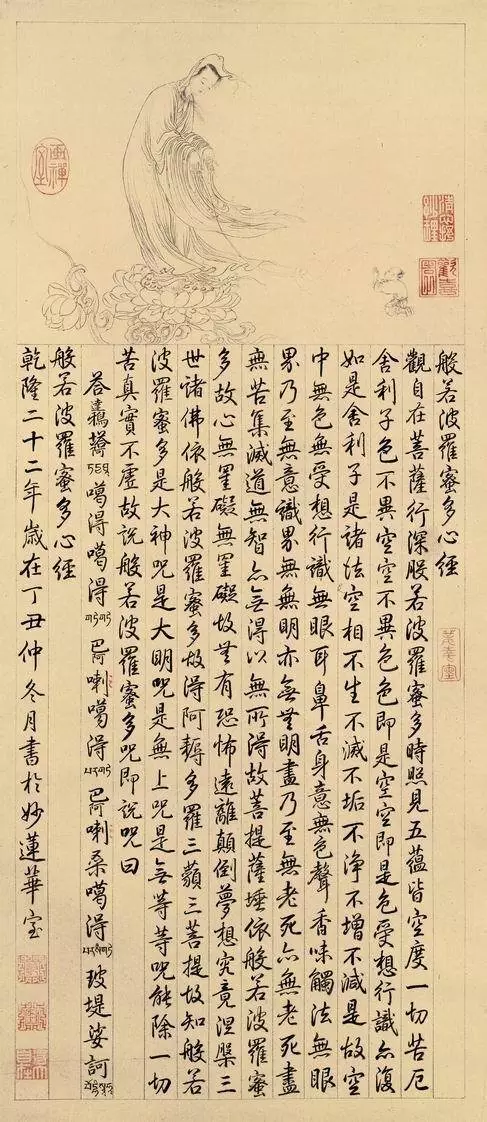 般若波羅蜜多心經
觀自在菩薩行深般若波羅蜜多時照見五蘊皆空度一切苦厄
舍利子色不異空空不異色色即是空空即是色受想行識亦復
如是舍利子是諸法空相不生不滅不垢不淨不增不減是故空
中無色無受想行識無眼耳鼻舌身意無色聲香味觸法無眼
界乃至無意識界無無明亦無無明盡乃至無老死亦無老死盡
無苦集滅道無智亦無得以無所得故菩提薩埵依般若波羅蜜
多故心無罣礙無罣礙故無有恐怖遠離顛倒夢想究竟涅槃三
世諸佛依般若波羅蜜多故得阿耨多羅三藐三菩提故知般若
波羅蜜多是大神咒是大明咒是無上咒是無等等咒能除一切
苦真實不虛故說般若波羅蜜多咒即說咒曰
噶得噶得 巴阿喇噶得 巴阿喇桑噶得 玻堤娑訶
般若波羅蜜多心經
乾隆二十二年歲在丁丑仲冬月書於妙蓮華室
畫禪室